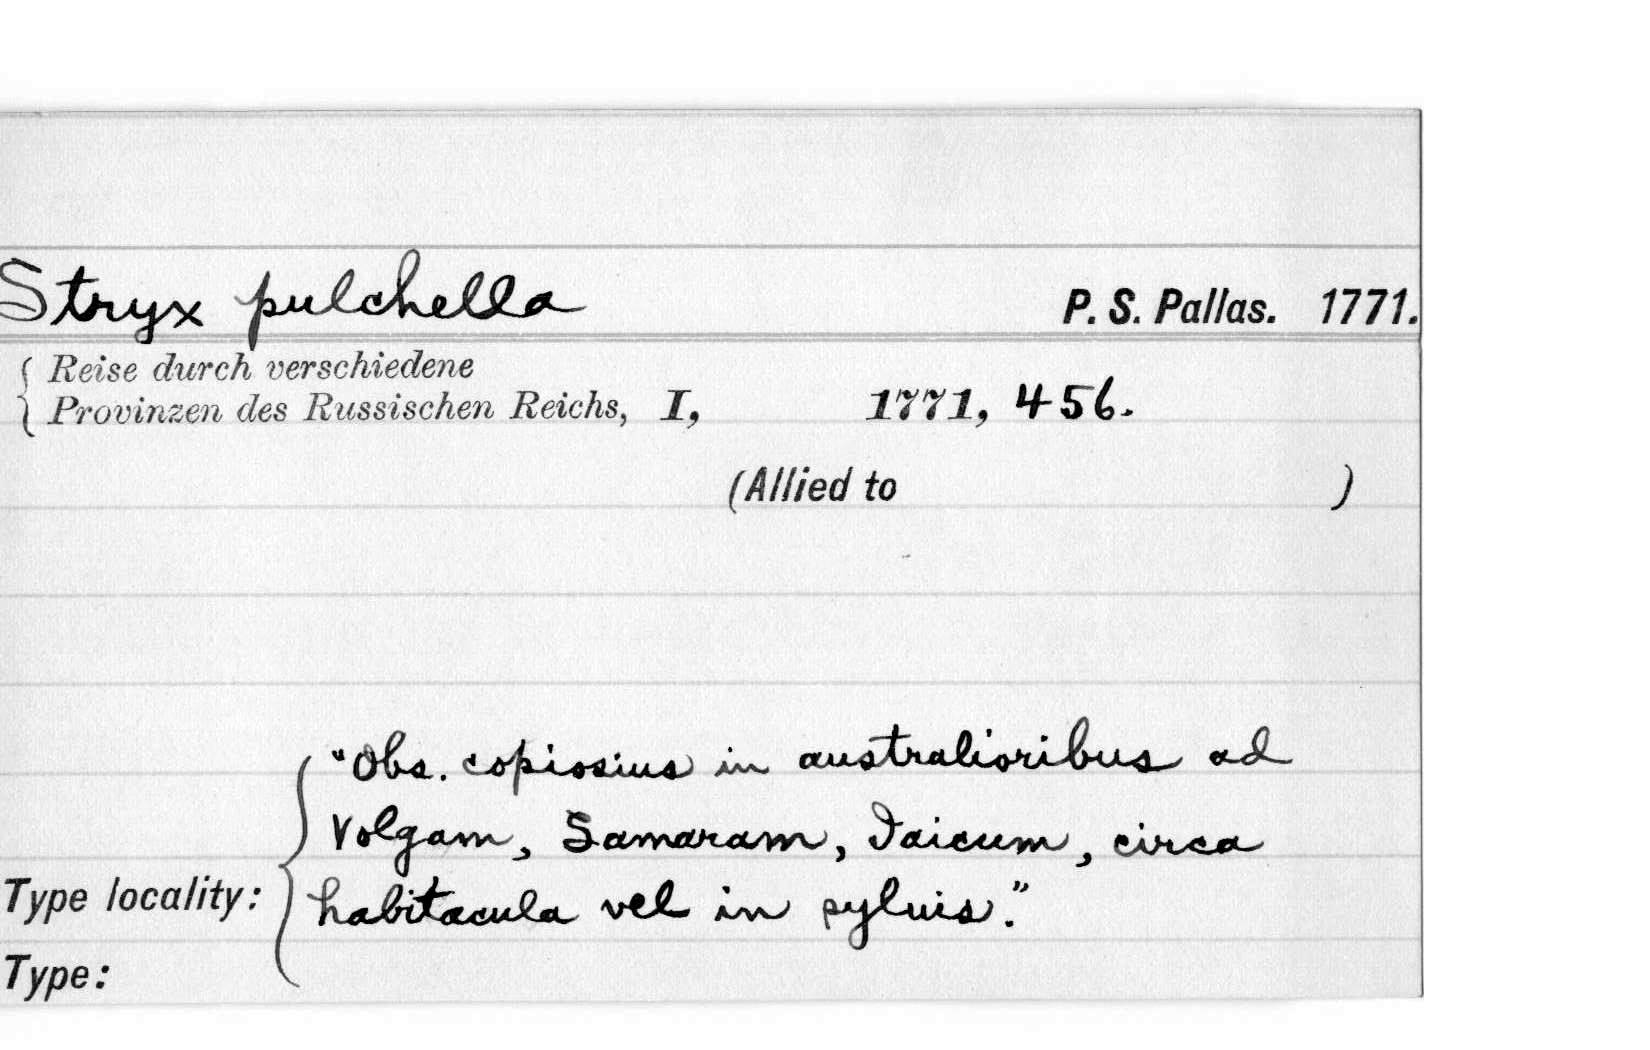 Stryx pulchella P. S. Pallas. 1771.
Reise durch verschiedene
Provinzen des Russischen Reichs, I, 1771, 456.
(Allied to )
"Obs. copiosius in australioribus ad
Volgam, Samaram, Iaicum, circa
Type locality: habitacula vel in sylvis."
Type: